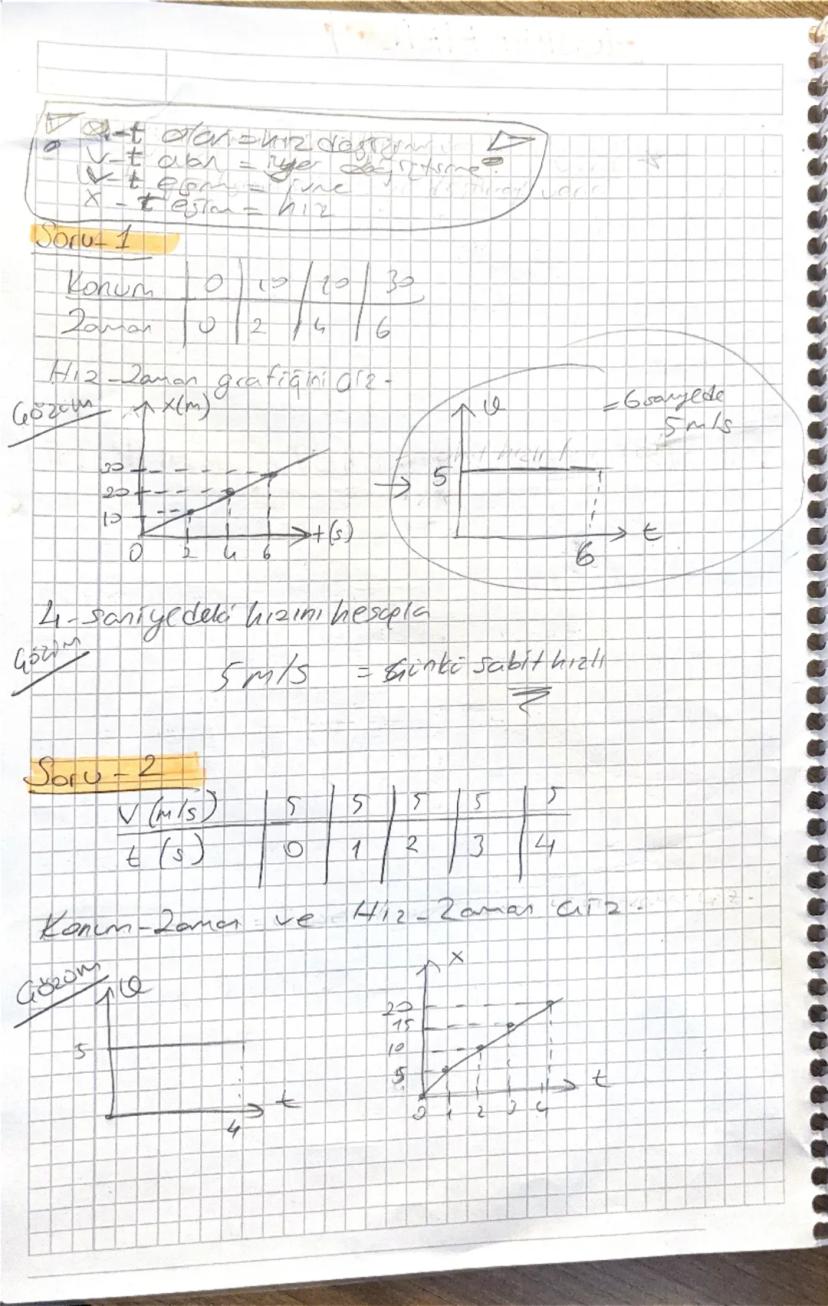 a-t alan = hız değişimi
v-t alan = yer değiştirme
v-t eğim = ivme
x-t eğim = hız
Soru-1
Konum 0 10 20 30
Zaman 0 2 4 6
Hız-Zaman grafiğini çiz.
Çözüm
x(m)
30
20
10
0 2 4 6 t(s)
v
= 6 saniyede
5 m/s
5
6 t
4. saniyedeki hızını hesapla
Çözüm
5 m/s = çünkü sabit hızlı
Soru-2
V (m/s) 5 5 5 5 5
t (s) 0 1 2 3 4
Konum-Zaman ve Hız-Zaman çiz.
Çözüm
v
5
4 t
x
20
15
10
5
0 1 2 3 4 t